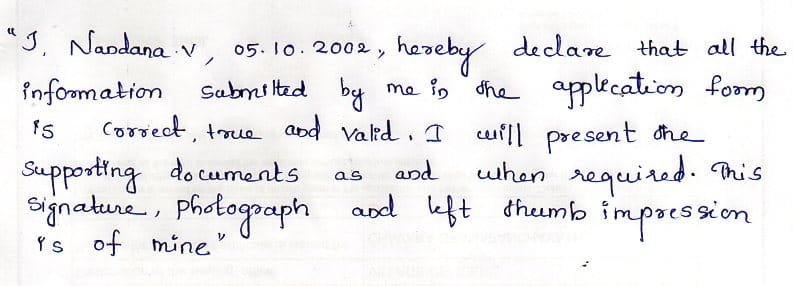 "I, Nandana.V, 05.10.2002, hereby declare that all the
information submitted by me in the application form
is correct, true and valid. I will present the
supporting documents as and when required. This
signature, photograph and left thumb impression
is of mine"